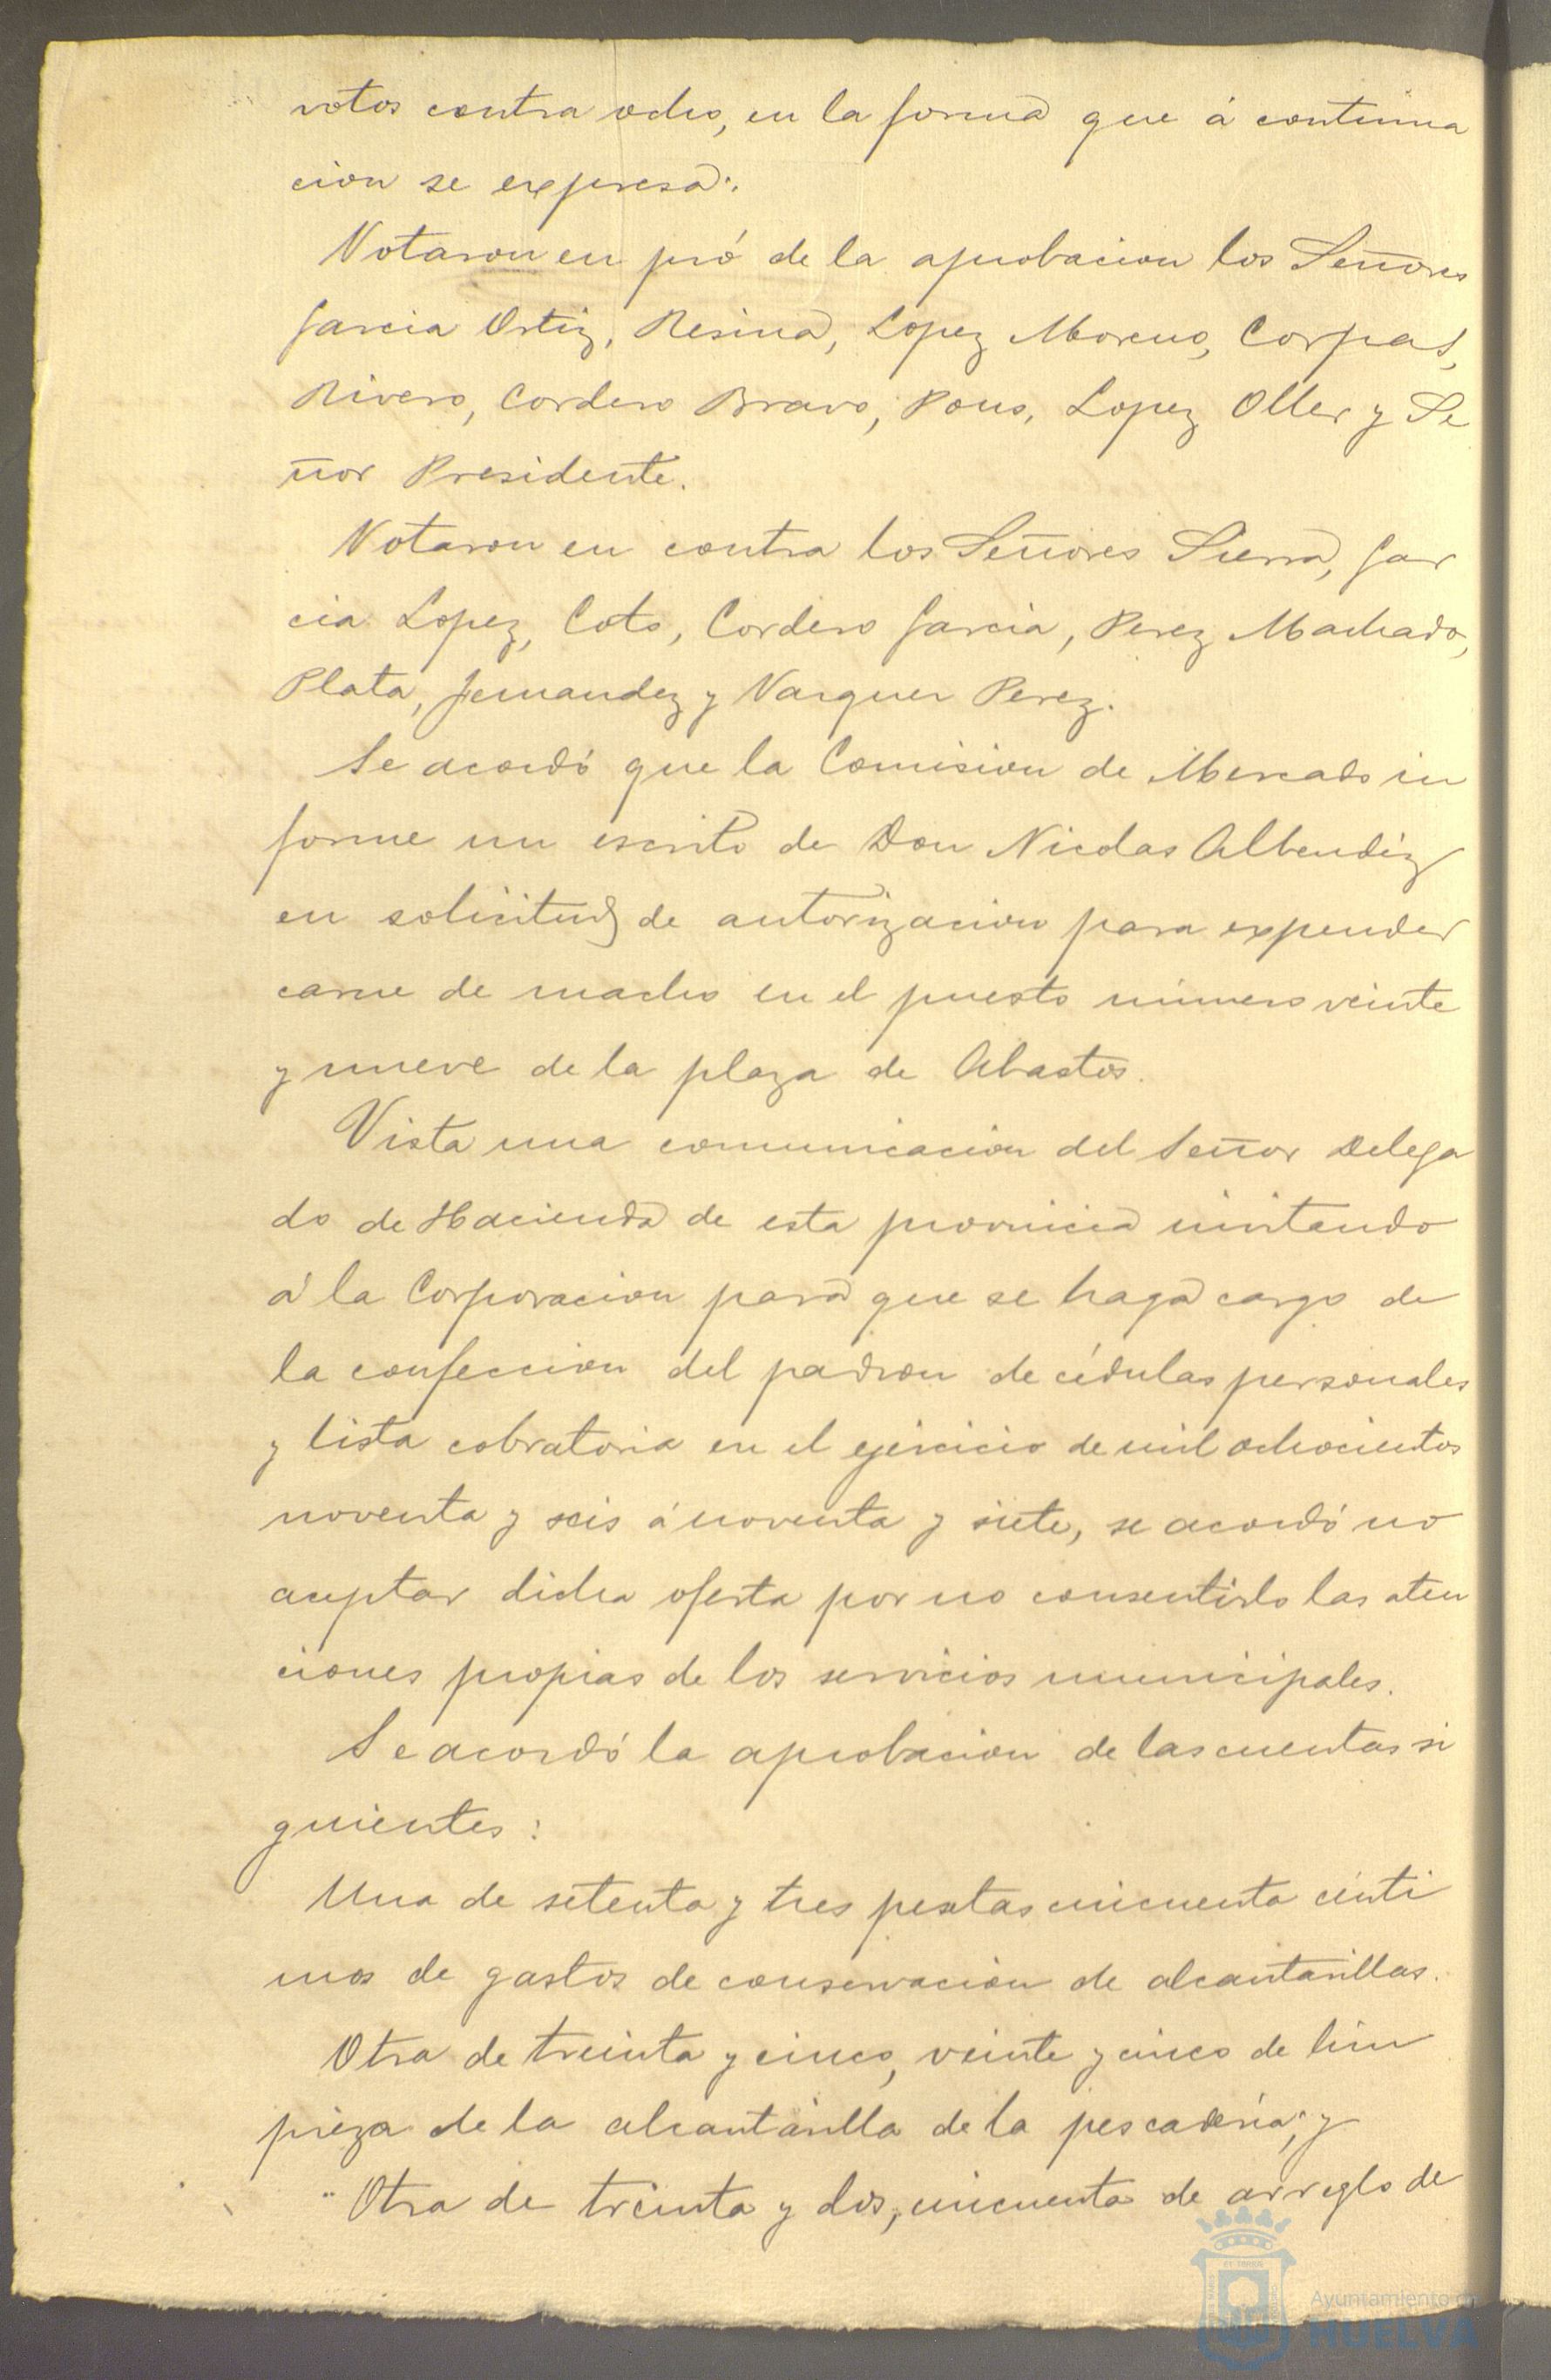 votos contra ocho, en la forma que á continua
cion se expresa:
Votaron en pró de la aprobacion los Señores
Garcia Ortiz, Resina, Lopez Moreno, Corpas,
Rivero, Cordero Bravo, Pons, Lopez Oller y Se
ñor Presidente.
Votaron en contra los Señores Sierra, Gar
cia Lopez, Coto, Cordero Garcia, Perez Machado,
Plata, Fernandez y Vazquez Perez.
Se acordó que la Comision de Mercado in
forme un escrito de Don Nicolas Albendiz
en solicitud de autorizacion para expender
carne de macho en el puesto número veinte
y nueve de la plaza de Abastos.
Vista una comunicacion del Señor Delega
do de Hacienda de esta provincia invitando
á la Corporacion para que se haga cargo de
la confeccion del padron de cédulas personales
y lista cobratoria en el ejercicio de mil ochocientos
noventa y seis á noventa y siete, se acordó no
aceptar dicha oferta por no consentirlo las aten
ciones propias de los servicios municipales.
Se acordó la aprobacion de las cuentas si
guientes:
Una de setenta y tres pesetas cincuenta cénti
mos de gastos de conservacion de alcantarillas.
Otra de treinta y cinco, veinte y cinco de lim
pieza de la alcantarilla de la pescadería; y
Otra de treinta y dos, cincuenta de arreglo de
Ayuntamiento de
HUELVA